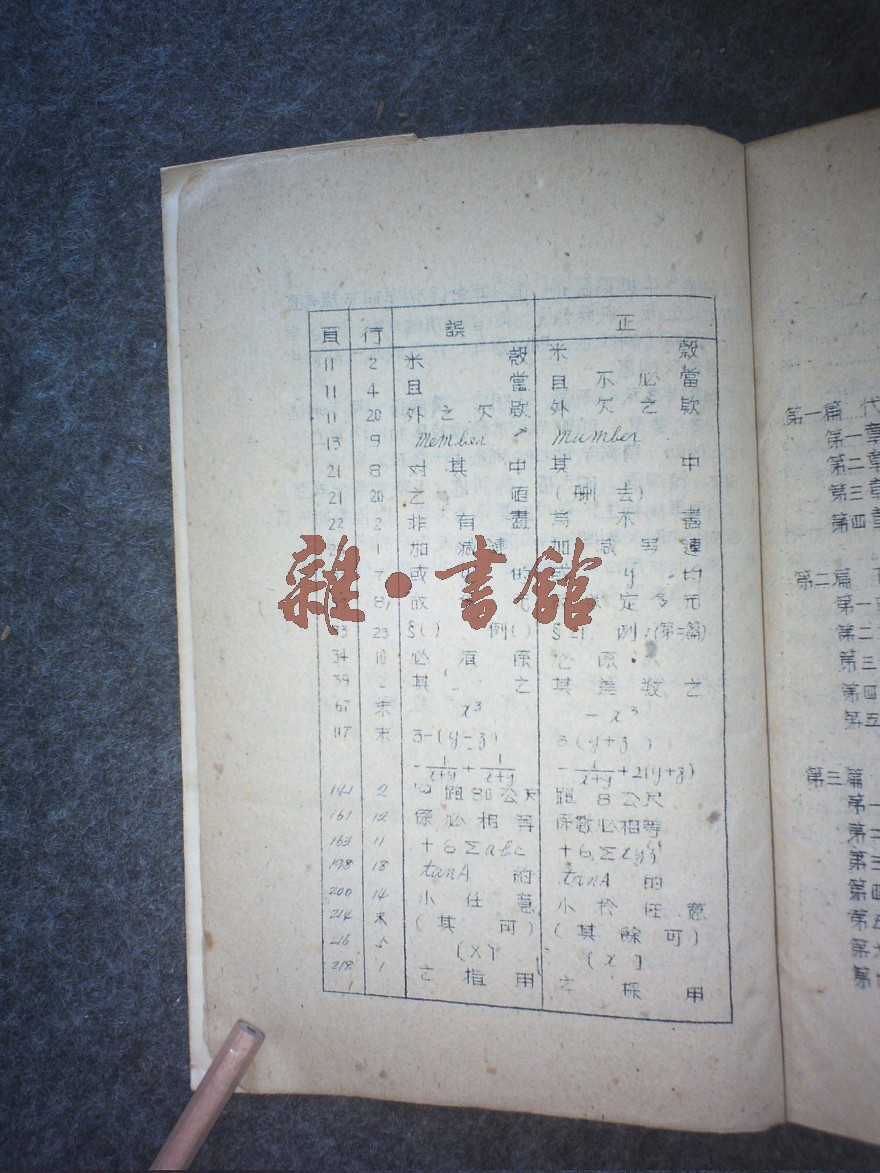 頁 行 誤 正
11 2 米穀 米穀
11 4 且當 且不必當
11 20 外之欠欵 外欠之欵
13 9 Member Mumber
21 8 对其中 其中
21 20 之值 (刪去)
22 2 非有盡 為不盡
1 加減連 加減 連
7 或 的 y 均
8 故 元 定多元
33 23 §() 例() § 例 (第二篇)
34 10 必須係 必係
39 2 其之 其差数之
67 末 x³ -x³
117 末 3-(y-z) 3(y+z)
-1/(x+y)+1/(x+y) -1/(x+y)+2(y+z)
141 2 跑80公尺 跑8公尺
161 12 係必相等 係數必相等
163 11 +6Σabc +6Σxyz
198 18 tanA的 tanA的
200 14 小任意 小於任意
214 末 (其可) (其餘可)
216 (X) [x]
218 1 之指用 之採用
雜·書館
第一篇 代
第一章
第二章
第三章
第四章
第二篇
第一
第二
第三
第四
第五
第三篇
第一
第二
第三
第四
第五
第六
第